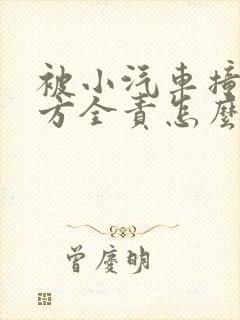 被小汽车撞
方全责怎麼
曾慶明